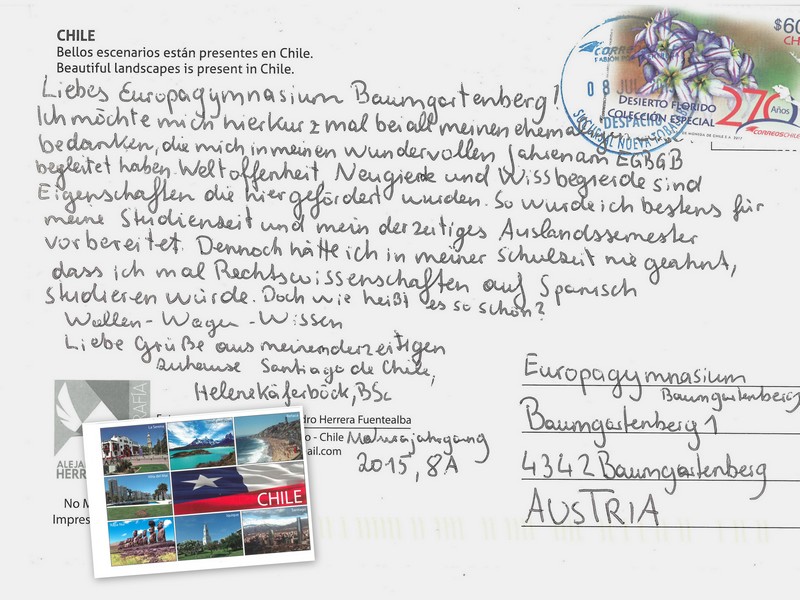 CHILE
Bellos escenarios están presentes en Chile.
Beautiful landscapes is present in Chile.
Liebes Europagymnasium Baumgartenberg!
Ich möchte mich hier kurz mal bei all meinen ehemaligen
bedanken, die mich in meinen wundervollen Jahren am EGBGB
begleitet haben. Weltoffenheit, Neugierde und Wissbegierde sind
Eigenschaften die hier gefördert wurden. So wurde ich bestens für
meine Studienzeit und mein derzeitiges Auslandssemester
vorbereitet. Dennoch hätte ich in meiner Schulzeit nie geahnt,
dass ich mal Rechtswissenschaften auf Spanisch
studieren würde. Doch wie heißt es so schön?
Wollen-Wagen-Wissen
Liebe Grüße aus meinem derzeitigen
Zuhause Santiago de Chile,
Helene Käferböck, BSc
Maturajahrgang
2015, 8A
$60
CH
08 JUL
DESPACHO
SUCURSAL NUEVA TOBA
DESIERTO FLORIDO
COLECCIÓN ESPECIAL
270 Años
CORREOSCHILE
Europagymnasium
Baumgartenberg
Baumgartenberg 1
4342 Baumgartenberg
AUSTRIA
dro Herrera Fuentealba
o - Chile
ail.com
ALEJA
HERR
RAFÍA
No M
Impres
CHILE